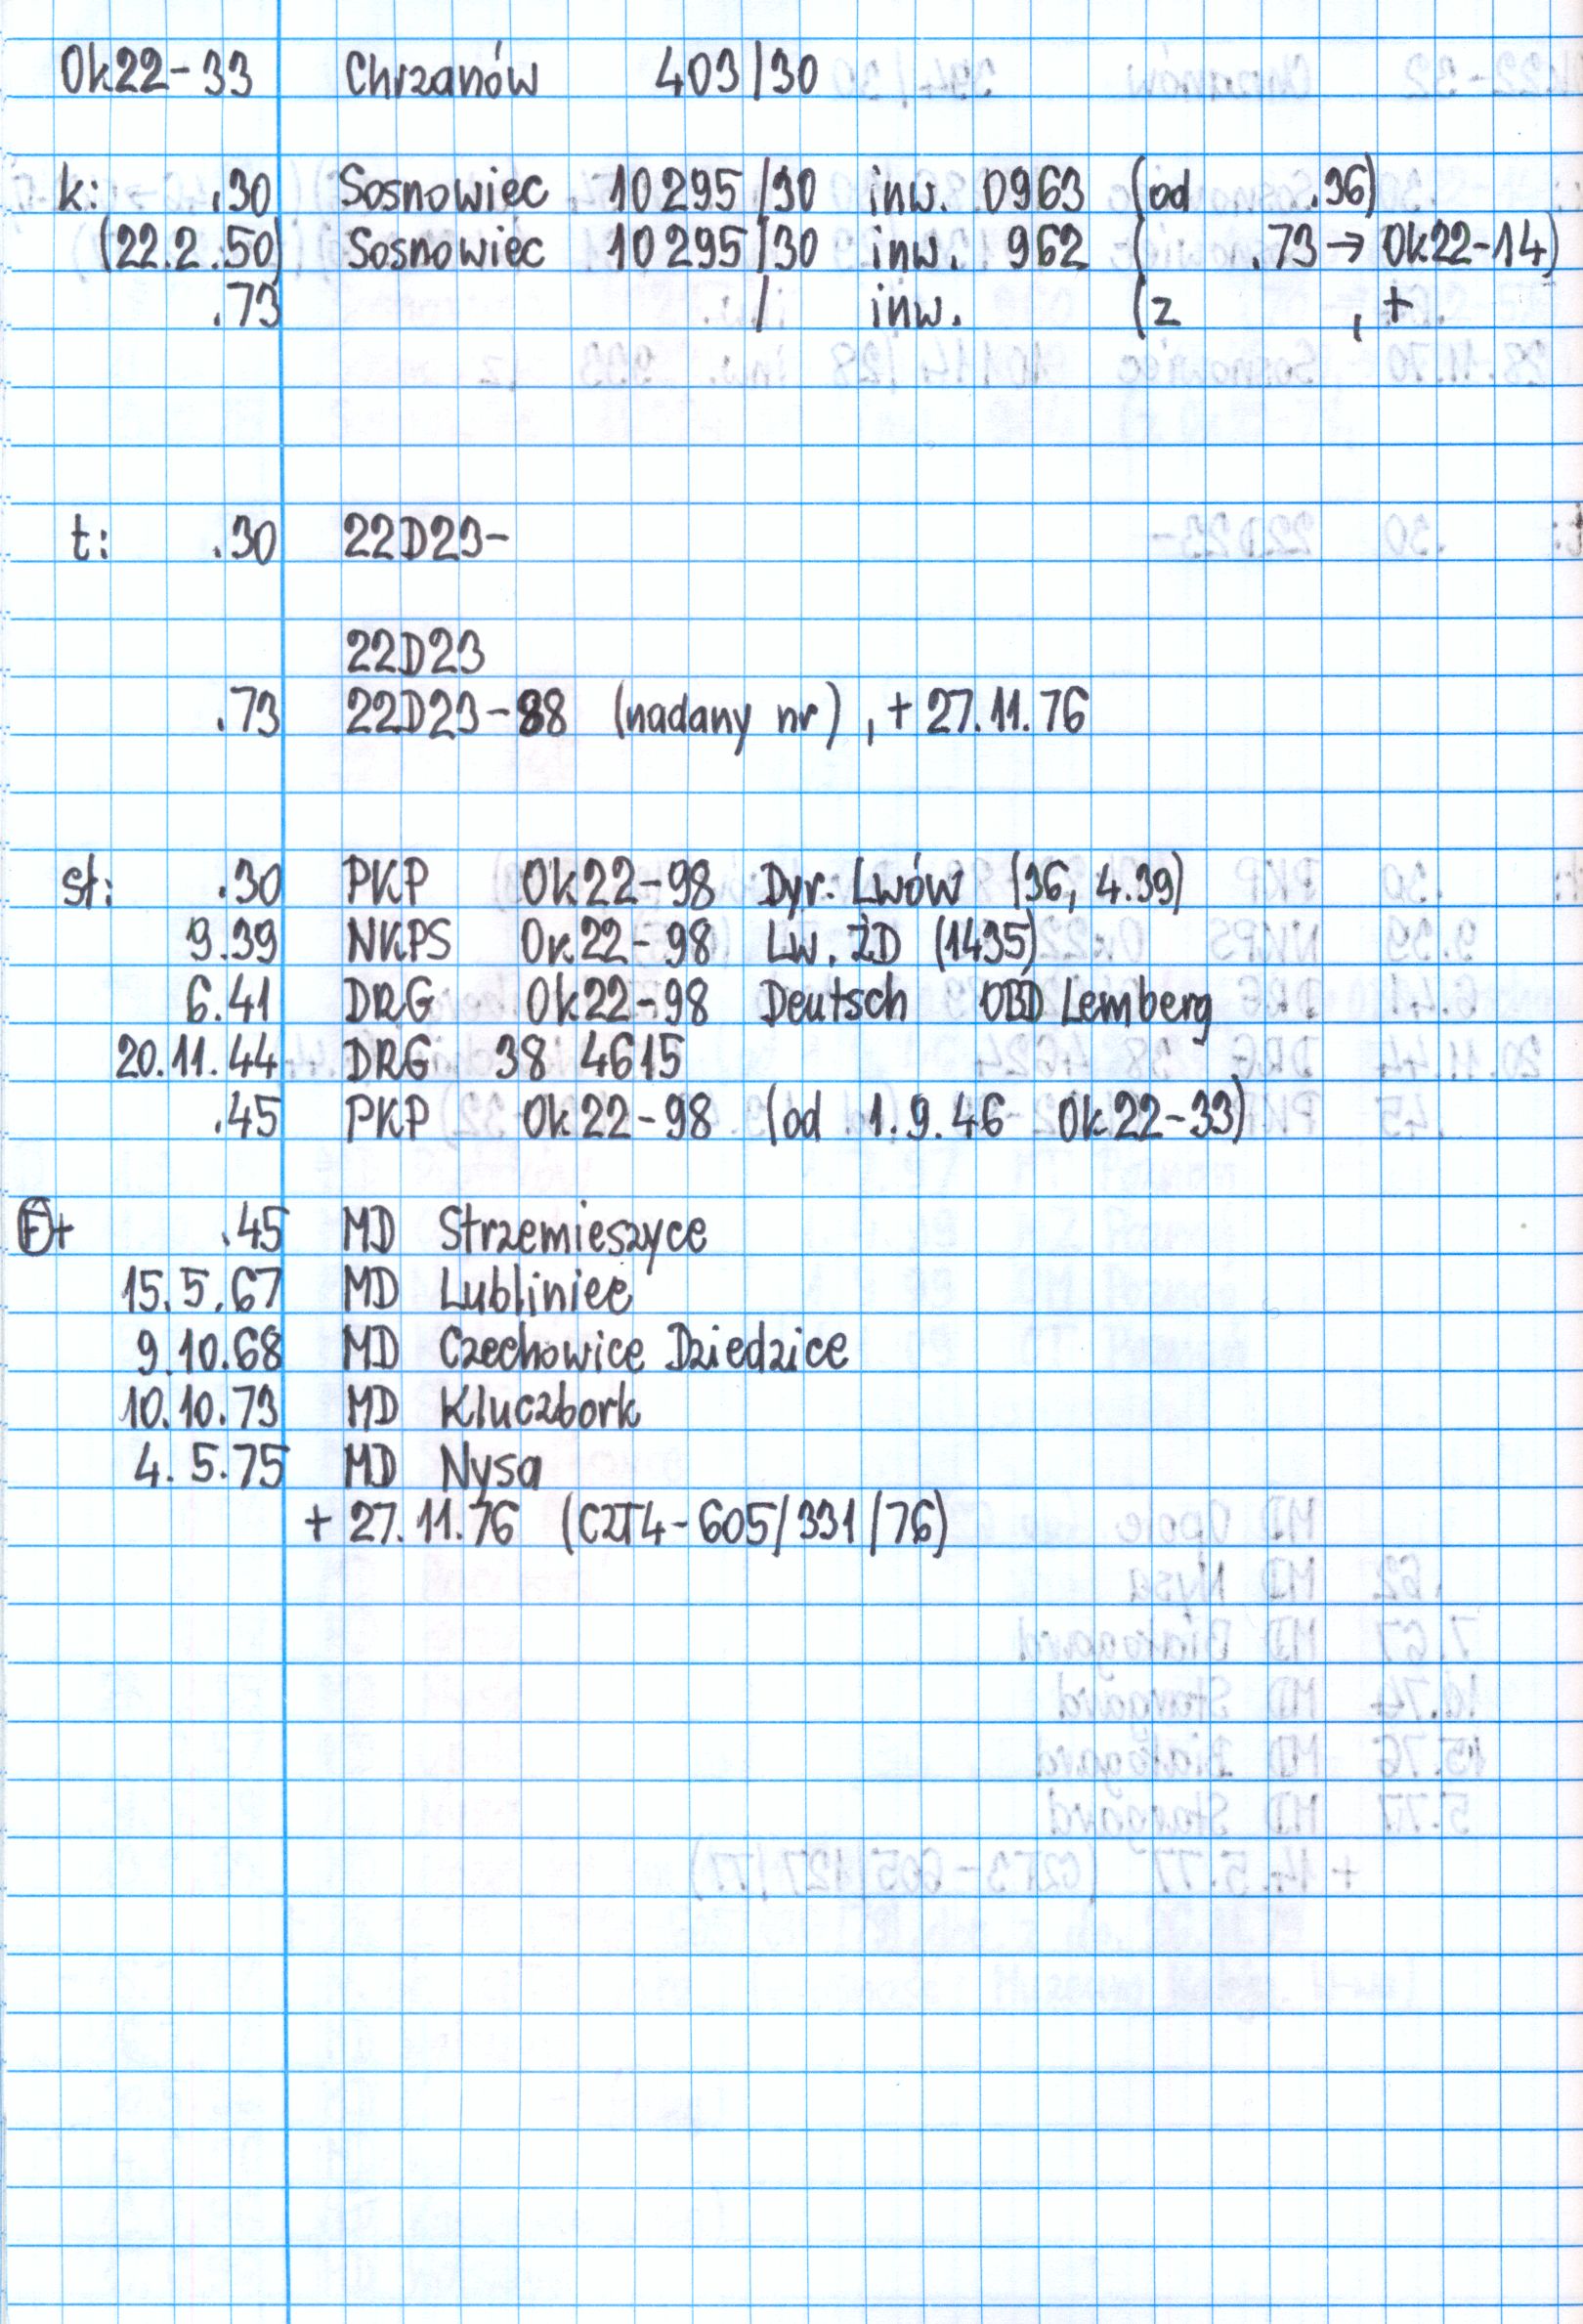 Ok22-33 Chrzanów 403/30
k: .30 Sosnowiec 10295/30 inw. 0963 (od .36)
(22.2.50) Sosnowiec 10295/30 inw. 962 ( .73 → Ok22-14)
.73 / inw. (z , +
t: .30 22D23-
22D23
.73 22D23-88 (nadany nr), + 27.11.76
st: .30 PKP Ok22-98 Dyr. Lwów (36, 4.39)
9.39 NKPS Ok22-98 Lw. ŻD (1435)
6.41 DRG Ok22-98 Deutsch OBD Lemberg
20.11.44 DRG 38 4615
.45 PKP Ok22-98 (od 1.9.46 Ok22-33)
E+ .45 MD Strzemieszyce
15.5.67 MD Lubliniec
9.10.68 MD Czechowice Dziedzice
10.10.73 MD Kluczbork
4.5.75 MD Nysa
+ 27.11.76 (CZT4-605/331/76)